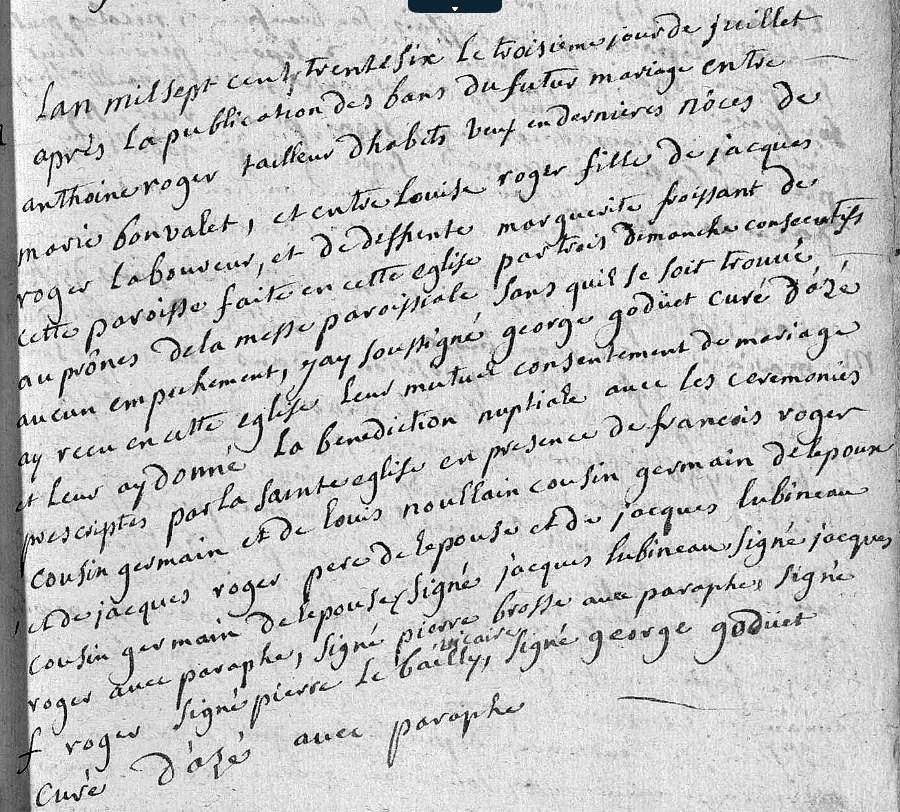 Lan mil sept cent trente six le troisieme jour de juillet
après la publication des bans du futur mariage entre
anthoine roger tailleur dhabits veuf en dernieres nôces de
marie bonvalet, et entre Louise roger fille de jacques
roger laboureur, et de deffunte marguerite froissant de
cette paroisse faite en cette eglise par trois dimanche consecutifs
au prônes de la messe paroissiale sans quil se soit trouvé
aucun empechement, jay soussigné george godüet curé d'azé
ay recu en cette eglise leur mutuel consentement de mariage
et leur ay donné la benediction nuptiale avec les ceremonies
prescriptes par la sainte eglise en presence de francois roger
cousin germain et de louis noullain cousin germain de lepoux
et de jacques roger pere de lepouse et de jacques lubineau
cousin germain de lepouse, signé jacques lubineau signé jacques
roger avec paraphe, signé pierre brosse avec paraphe, signé
f roger signé pierre le bailly, vicaire, signé george godüet
curé d'azé avec paraphe